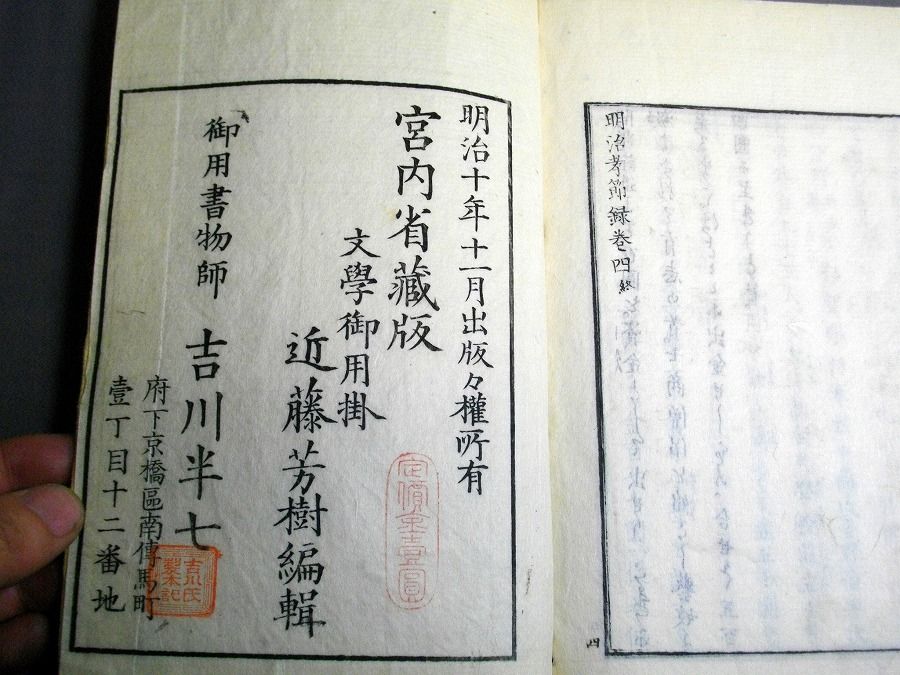 明治孝節録巻四終
四
明治十年十一月出版々權所有
宮内省藏版
文學御用掛
近藤芳樹編輯
定價金壹圓
御用書物師
吉川半七
府下京橋區南傳馬町
壹丁目十二番地
吉川氏製本記